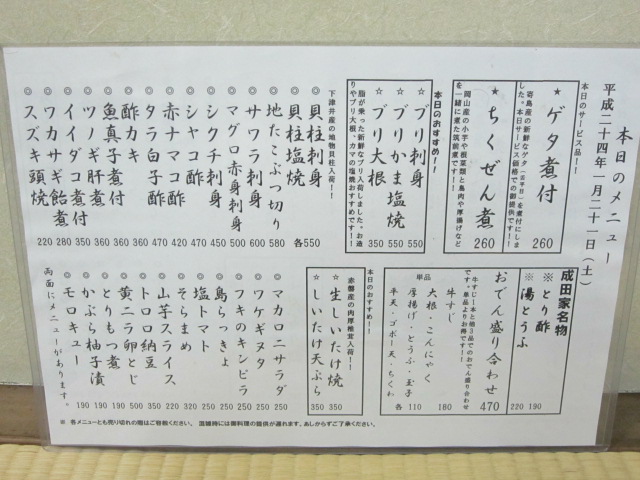 本日のメニュー
平成二十四年一月二十一日(土)
本日のサービス品!!
寄島産の新鮮なゲタ(舌平目)を煮付にしました。本日サービス価格での御提供です!
★ ゲタ煮付 260
岡山産の小芋や根菜類と鳥肉や厚揚げなどを一緒に煮た筑前煮です!!
★ ちくぜん煮 260
本日のおすすめ!!
☆ ブリ刺身 550
☆ ブリかま塩焼 550
☆ ブリ大根 350
脂が乗ったブリ入荷しました。お造りやブリ大根、カマの塩焼おすすめです!!
下津井産の地物貝柱入荷!!
◎ 貝柱刺身
◎ 貝柱塩焼 各550
◎ 地たこぶつ切り 580
◎ サワラ刺身 600
◎ マグロ赤身刺身 500
◎ シクチ刺身 450
◎ シャコ酢 470
◎ 赤ナマコ酢 420
◎ タラ白子酢 470
◎ 酢カキ 360
◎ 魚真子煮付 360
◎ ツノギ肝煮 360
◎ イイダコ煮付 350
◎ ワカサギ飴煮 280
◎ スズキ頭焼 220
成田家名物
※ とり酢 190
※ 湯とうふ 220
おでん盛り合わせ 470
牛すじ1本と他3品でのおでん盛り合わせです。単品よりお得です!!
単品
牛すじ 180
大根・こんにゃく
厚揚げ・とうふ・玉子
平天・ゴボー天・ちくわ 各110
本日のおすすめ!!
赤磐産の肉厚椎茸入荷!!
☆ 生しいたけ焼 350
☆ しいたけ天ぷら 350
◎ マカロニサラダ 250
◎ ワケギヌタ 250
◎ フキのキンピラ 250
◎ 島らっきょ 250
◎ 塩トマト 200
◎ そらまめ 320
◎ 山芋スライス 220
◎ トロロ納豆 350
◎ 黄ニラ卵とじ 500
◎ とりもつ煮 190
◎ かぶら柚子漬 190
◎ モロキュー 190
両面にメニューがあります。
※ 各メニューとも売り切れの際はご容赦ください。 混雑時には御料理の提供が遅れます。あしからずご了承ください。